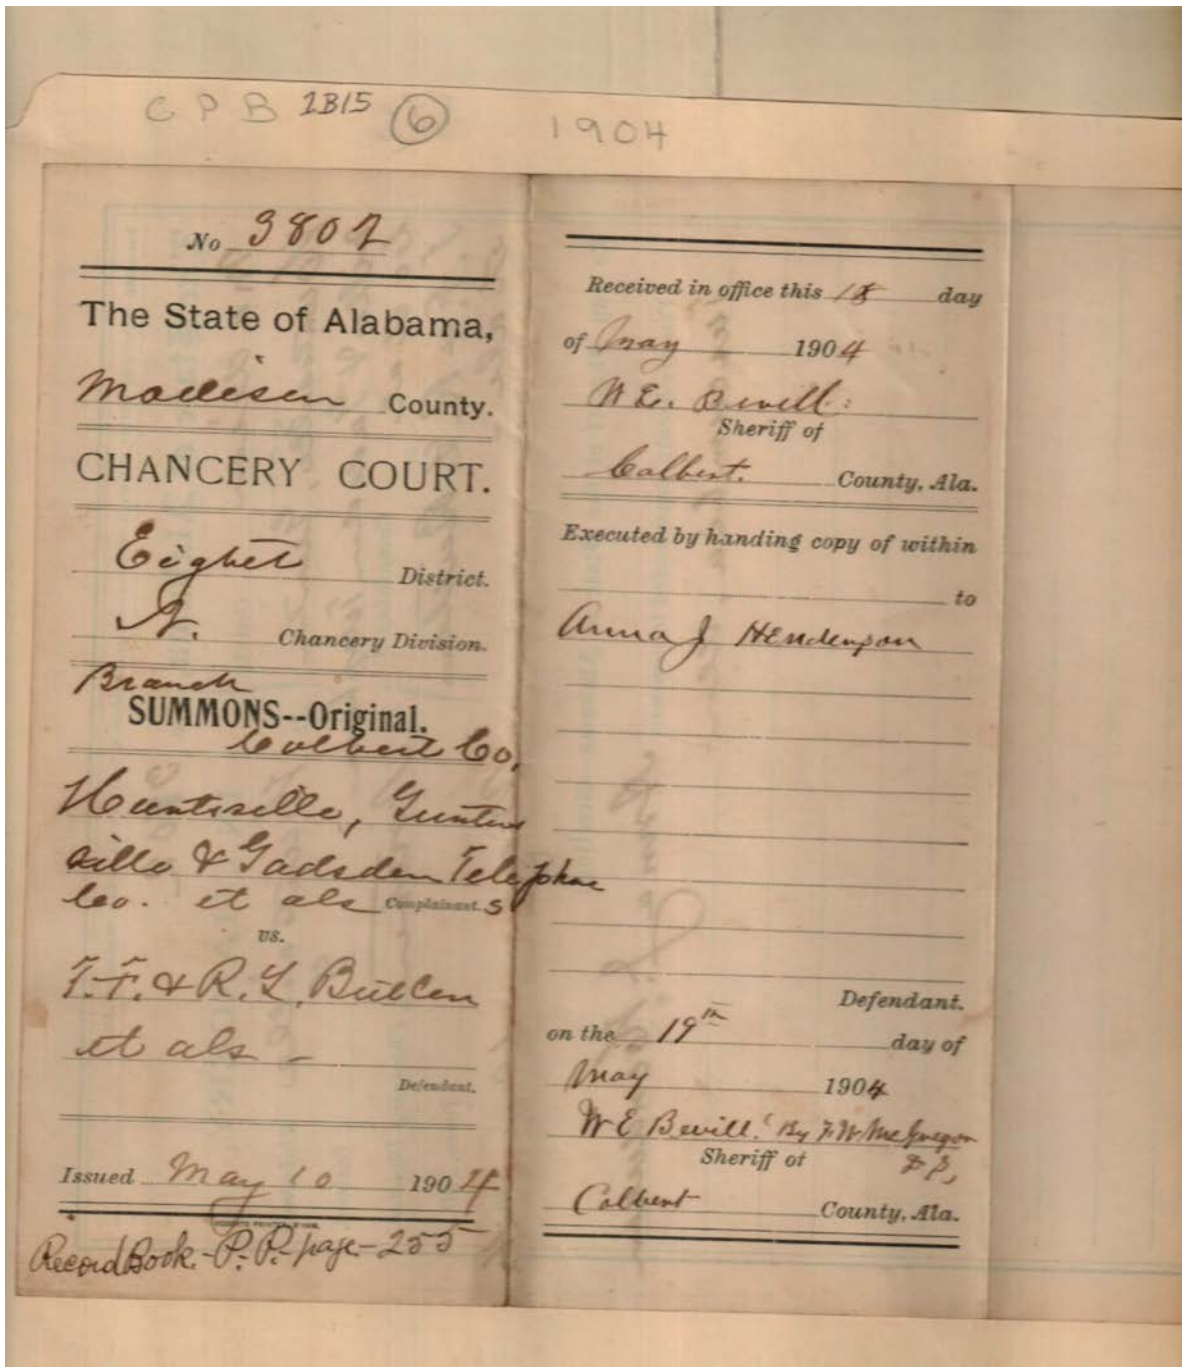 C P B 1B15 6 1904
No 3807
The State of Alabama,
Madison County.
CHANCERY COURT.
Eighth District.
N. Chancery Division.
Branch
SUMMONS--Original.
Colbert Co.
Huntsville, Gunters
ville & Gadsden Telephone
Co. et als Complainant.s
vs.
T.T. & R.L. Butler
et als -
Defendant.
Issued May 10 1904
Record Book.-P.P.-page-255
Received in office this 18 day
of May 1904
W.E. Bevill.
Sheriff of
Colbert. County, Ala.
Executed by handing copy of within
to
Anna J Henderson
Defendant.
on the 19th day of
May 1904
W E Bevill. By F.W McGregor
Sheriff of D S,
Colbert County, Ala.